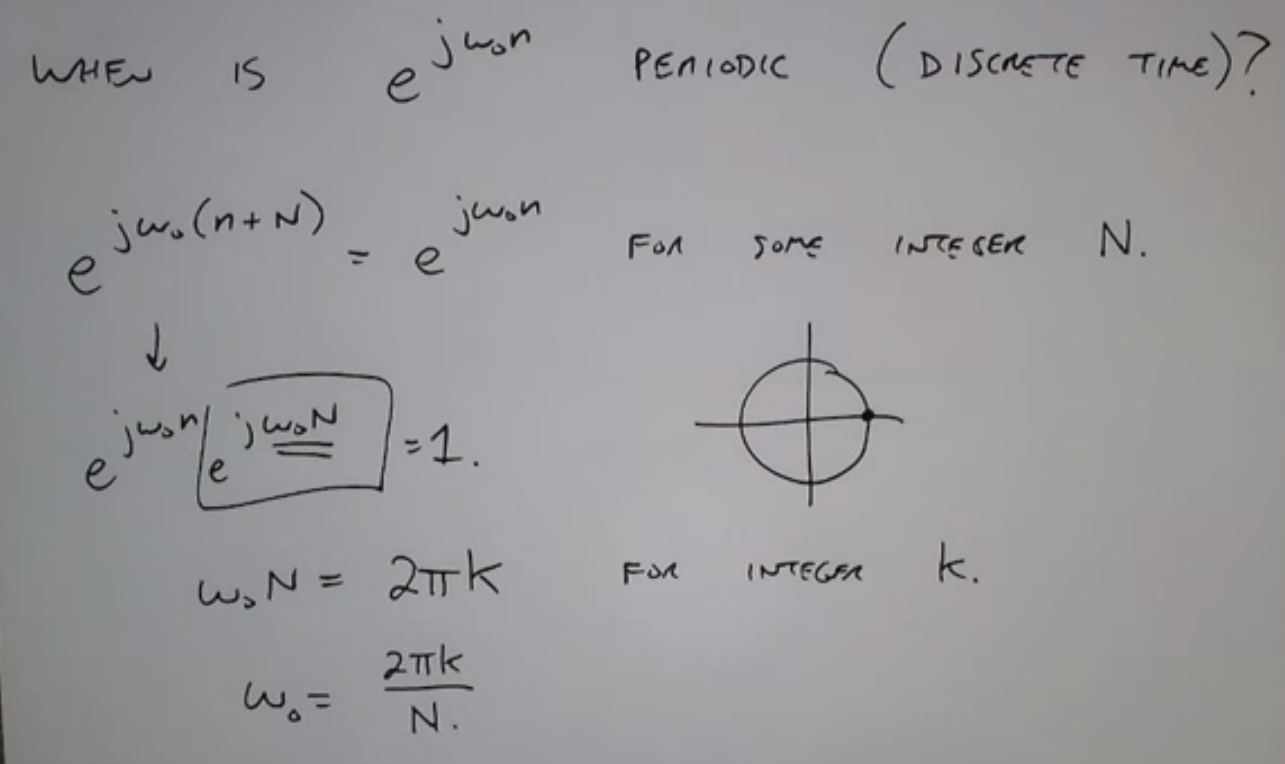 WHEN IS e^{jω₀n} PERIODIC (DISCRETE TIME)?
e^{jω₀(n+N)} = e^{jω₀n} FOR SOME INTEGER N.
↓
e^{jω₀n} e^{jω₀N} = 1.
ω₀N = 2πk FOR INTEGER k.
ω₀ = 2πk/N.